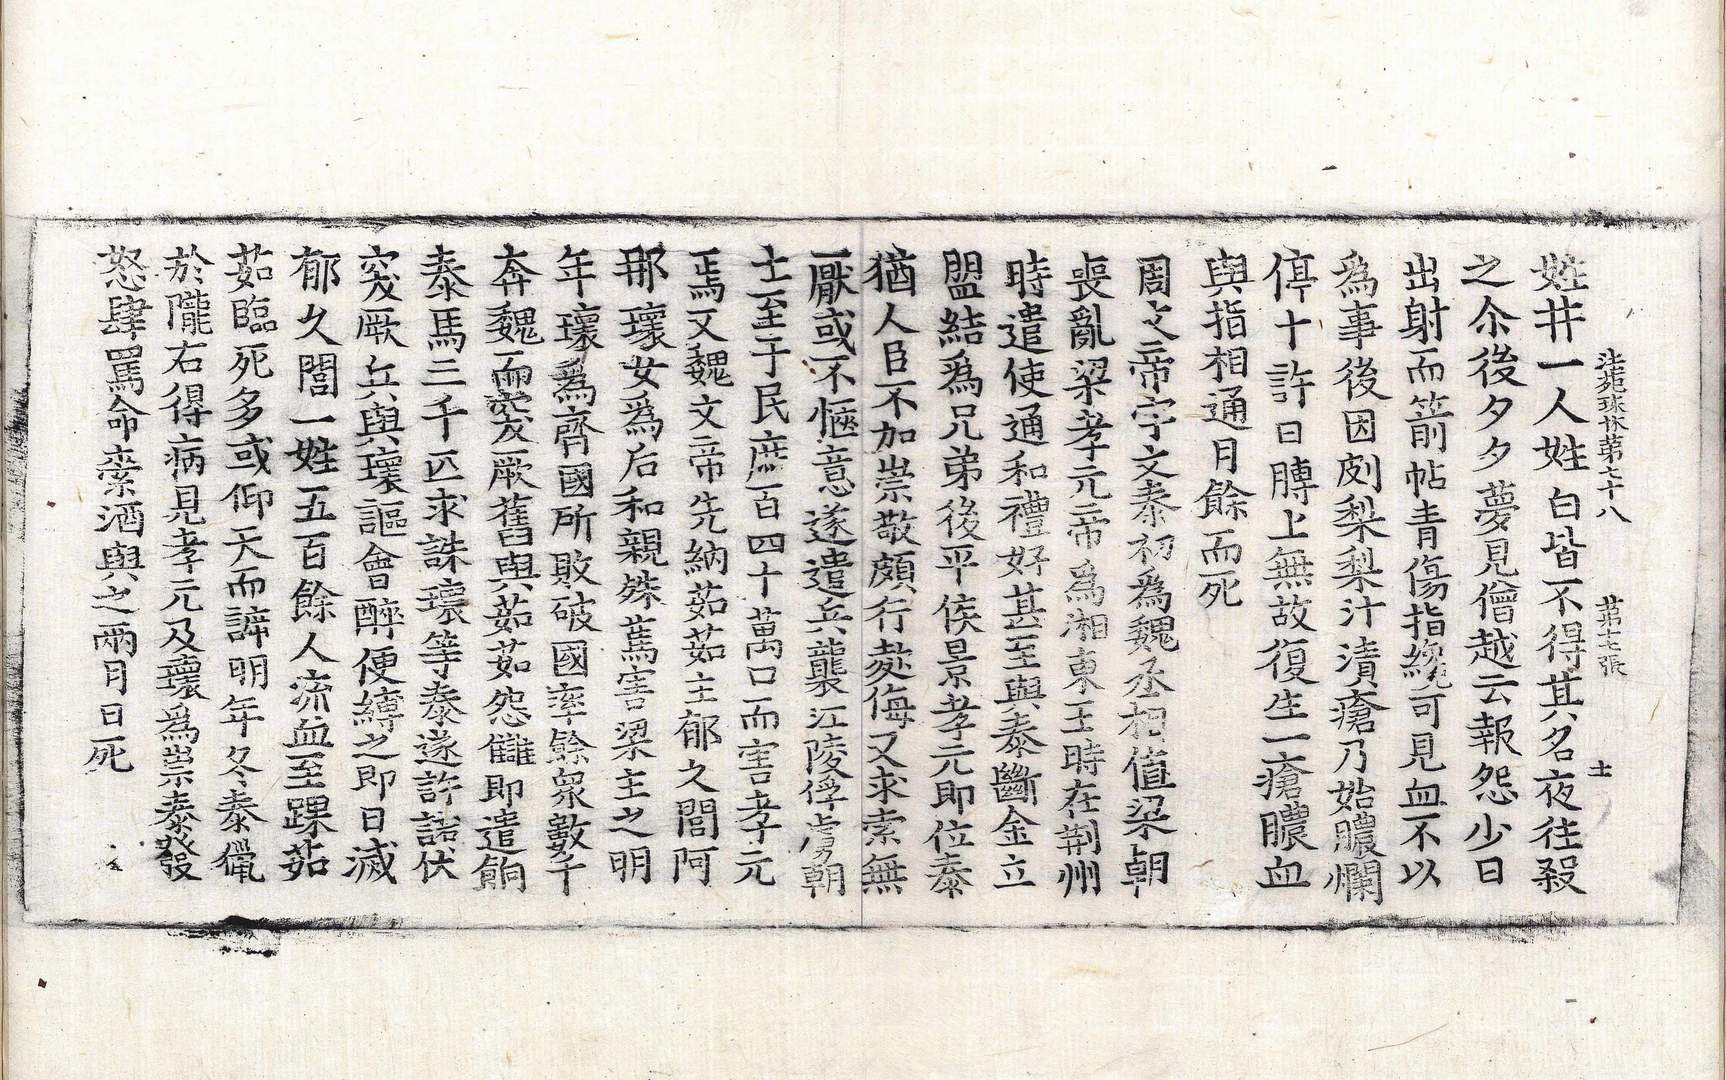 法苑珠林第七十八　第七張　士
姓井一人姓白皆不得其名夜往殺
之尒後夕夕夢見僧越云報怨少日
出射而箭帖青傷指纔可見血不以
爲事後因剠梨梨汁漬瘡乃始膿爛
停十許日膊上無故復生一瘡膿血
與指相通月餘而死
周文帝宇文泰初爲魏丞相值梁朝
喪亂梁孝元帝爲湘東王時在荆州
時遣使通和禮好甚至與泰斷金立
盟結爲兄弟後平侯景孝元即位泰
猶人臣不加崇敬頗行㑥侮又求索無
厭或不愜意遂遣兵襲江陵俘虜朝
士至于民庶百四十萬口而害孝元
焉又魏文帝先納茹茹主郁久閭阿
那瓌女爲后和親殊篤害梁主之明
年瓌爲齊國所敗破國率餘衆數千
奔魏而突厥舊與茹茹怨讎即遣餉
泰馬三千匹求誅瓌等泰遂許諾伏
突厥兵與瓌謳會醉便縛之即日滅
郁久閭一姓五百餘人流血至踝茹
茹臨死多或仰天而諦明年冬泰獵
於隴右得病見孝元及瓌爲祟泰發
怒肆罵命索酒與之兩月日死